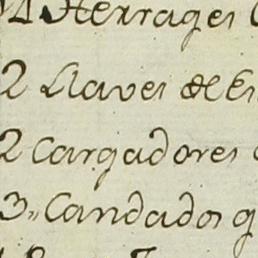 14 Herrages
2 Llaves de
2 Cargadores
3,, Candados q